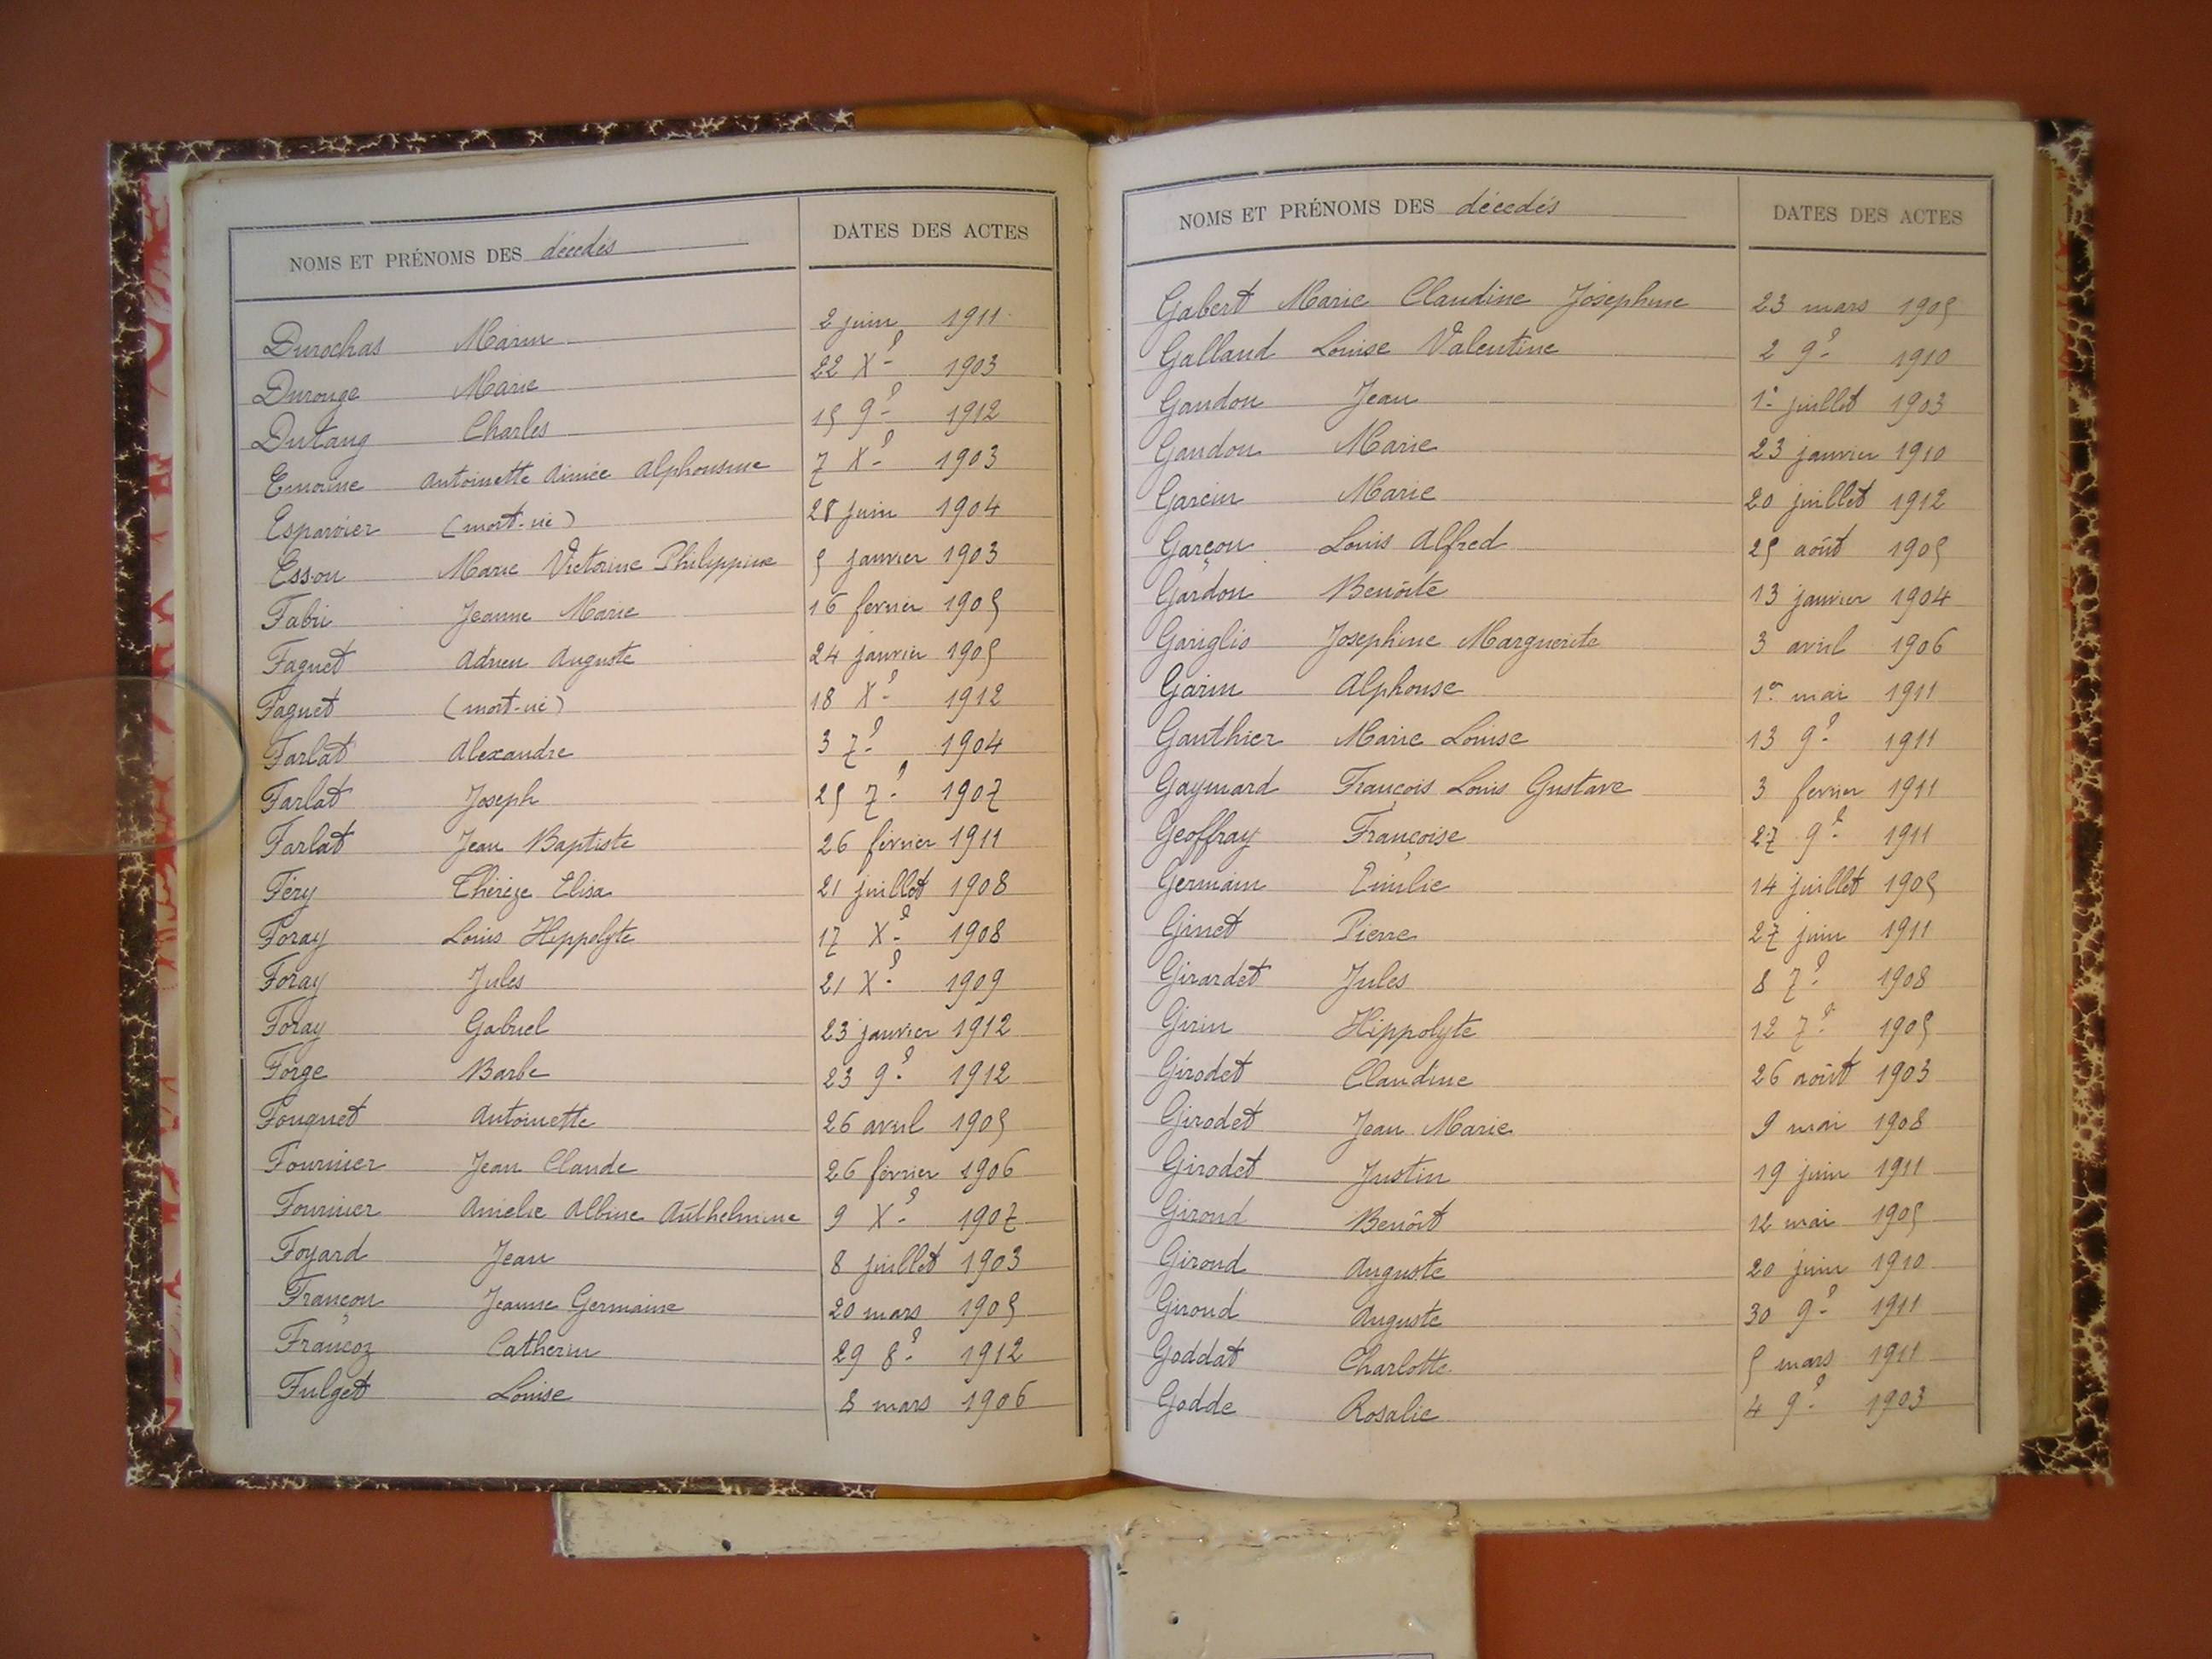 NOMS ET PRÉNOMS DES décédés DATES DES ACTES
Durochas Marin 2 juin 1911
Durouge Marie 22 Xᵉ 1903
Dutang Charles 15 9ᵉ 1912
Emorine Antoinette Aimée Alphonsine 7 Xᵉ 1903
Esparvier (mort-né) 28 juin 1904
Esson Marie Victorine Philippine 5 janvier 1903
Fabri Jeanne Marie 16 fevrier 1905
Faguet Adrien Auguste 24 janvier 1905
Faguet (mort-né) 18 Xᵉ 1912
Farlat Alexandre 3 7ᵉ 1904
Farlat Joseph 25 7ᵉ 1907
Farlat Jean Baptiste 26 février 1911
Féry Thérèze Elisa 21 juillet 1908
Foray Louis Hippolyte 17 Xᵉ 1908
Foray Jules 21 Xᵉ 1909
Foray Gabriel 23 janvier 1912
Forge Barbe 23 9ᵉ 1912
Fouguet Antoinette 26 avril 1905
Fournier Jean Claude 26 février 1906
Fournier Amélie Albine Anthelmine 9 Xᵉ 1907
Foyard Jean 8 juillet 1903
Françon Jeanne Germaine 20 mars 1905
Françoz Catherin 29 8ᵉ 1912
Fulget Louise 8 mars 1906
NOMS ET PRÉNOMS DES décédés DATES DES ACTES
Gabert Marie Claudine Joséphine 23 mars 1905
Galland Louise Valentine 2 9ᵉ 1910
Gandon Jean 1ᵉ juillet 1903
Gandon Marie 23 janvier 1910
Garcin Marie 20 juillet 1912
Garçon Louis Alfred 25 août 1905
Gardon Benoîte 13 janvier 1904
Gariglio Josephine Marguerite 3 avril 1906
Garin Alphonse 1ᵉʳ mai 1911
Gauthier Marie Louise 13 9ᵉ 1911
Gaymard François Louis Gustave 3 fevrier 1911
Geoffray Françoise 27 9ᵉ 1911
Germain Emilie 14 juillet 1905
Ginet Pierre 27 juin 1911
Girardet Jules 8 7ᵉ 1908
Girin Hippolyte 12 7ᵉ 1905
Girodet Claudine 26 août 1903
Girodet Jean Marie 9 mai 1908
Girodet Justin 19 juin 1911
Giroud Benôit 12 mai 1905
Giroud Auguste 20 juin 1910
Giroud Auguste 30 9ᵉ 1911
Goddat Charlotte 5 mars 1911
Godde Rosalie 4 9ᵉ 1903